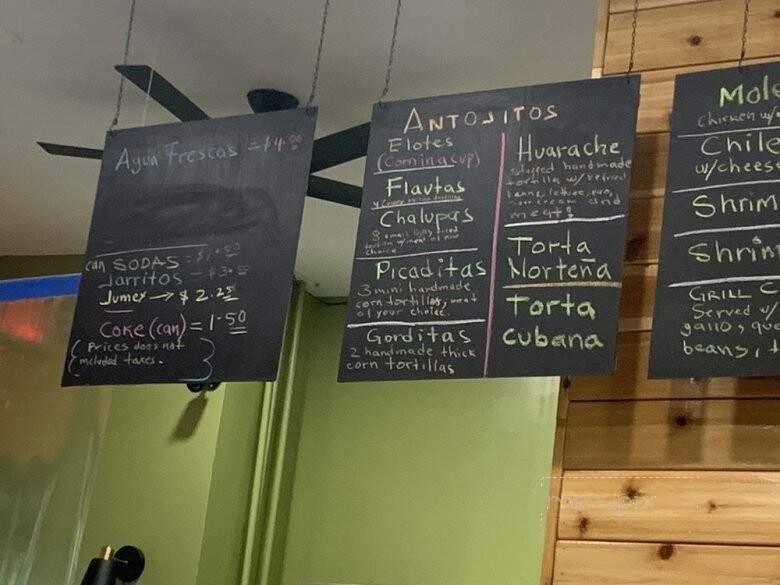 Agua Frescas = $4.00
can SODAS = $1.50
Jarritos - $3.50
Jumex → $2.25
Coke (can) = 1.50
(Prices does not
included taxes.)
ANTOJITOS
Elotes
(Corn in a cup)
Flautas
Chalupas
3 small
choice
Picaditas
3 mini handmade
corn tortillas, meat
of your choice.
Gorditas
2 handmade thick
corn tortillas
Huarache
handmade
tortilla w/ refried
beans, lettuce,
sour cream and
meat
Torta
Norteña
Torta
Cubana
Mole
Chicken w/
Chile
w/chees
Shrim
Shrim
GRILL C
Served w/
gallo, qu
beans, t